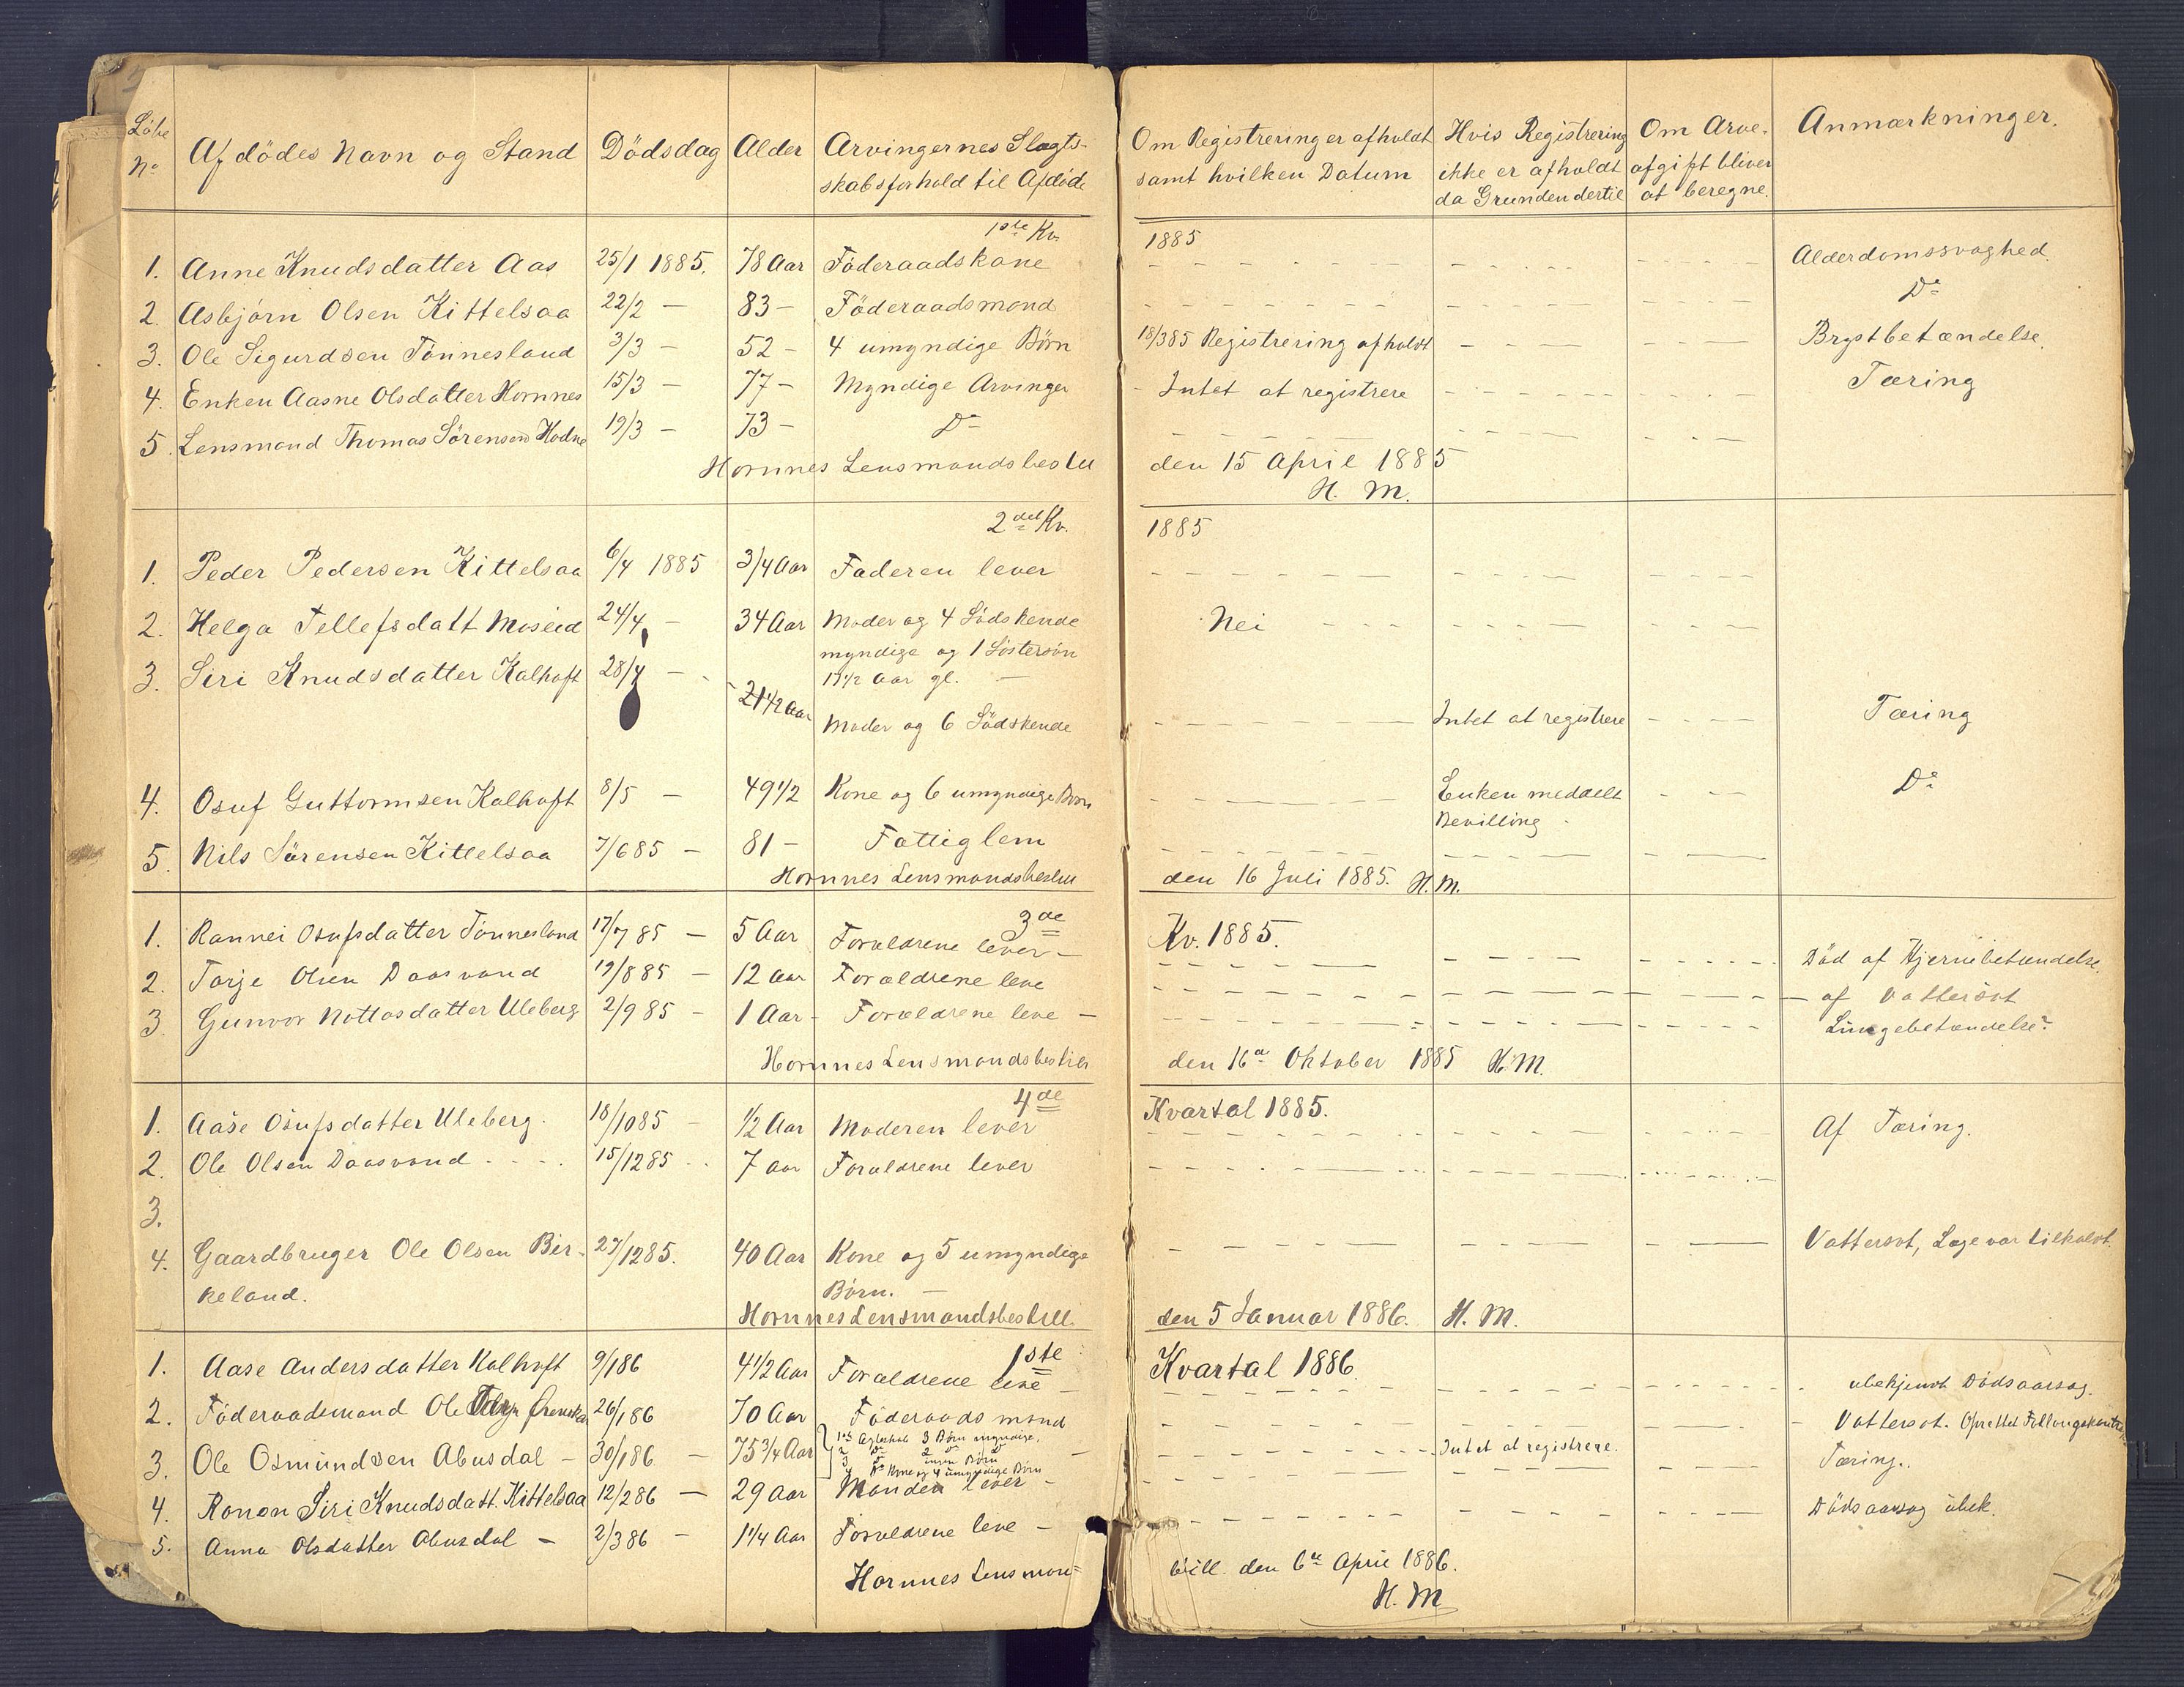 Løbe No Afdødes Navn og Stand Dödsdag Alder Arvingernes Slægts- Om Registrering er afholdt Hvis Registrering Om Arve- Anmærkninger.
skabsforhold til Afdöde samt hvilken Datum ikke er afholdt afgift bliver
da Grunden dertil at beregne.
1ste Kv. 1885
1. Anne Knudsdatter Aas 25/1 1885. 78 Aar Föderaadskone Alderdomssvaghed.
2. Asbjörn Olsen Kittelsaa 22/2 — 83 — Föderaadsmand Do
3. Ole Sigurdsen Tönnesland 3/3 — 52 — 4 umyndige Börn 18/3 85 Registrering afholdt Brystbetændelse.
4. Enken Aasne Olsdatter Hornnes 15/3 — 77 — Myndige Arvinger Intet at registrere Tæring
5. Lensmand Thomas Sörensen Hodne 19/3 — 73 — Do
Hornnes Lensmandsbestil den 15 April 1885
H. M.
2det Kv. 1885
1. Peder Pedersen Kittelsaa 6/4 1885 3/4 Aar Faderen lever
2. Helga Tellefsdatt Moseid 24/4 — 34 Aar Moder og 4 Södskende Nei
myndige og 1 Söstersön
3. Siri Knudsdatter Kalhoft 28/4 — 21 1/2 Aar 11 1/2 Aar gl. —
Moder og 6 Södskende Intet at registrere Tæring
4. Osuf Guttormsen Kalhoft 8/5 — 49 1/2 Kone og 6 umyndige Born Enken meddelt Do
Bevilling
5. Nils Sörensen Kittelsaa 7/6 85 — 81 — Fattiglem
Hornnes Lensmandsbestil den 16 Juli 1885. H. M.
3de Kv. 1885.
1. Rannei Osufsdatter Tönnesland 17/7 85 — 5 Aar Forældrene lever — Död af Hjernebetændelse.
2. Torje Olsen Daasvand 19/8 85 — 12 Aar Forældrene leve — af Vattersot
3. Gunvor Nottosdatter Uleberg 2/9 85 — 1 Aar — Forældrene leve — Lungebetændelse
Hornnes Lensmandsbestil den 16de Oktober 1885 H. M.
4de Kvartal 1885.
1. Aase Osufsdatter Uleberg. 18/10 85 — 1/2 Aar Moderen lever Af Tæring.
2. Ole Olsen Daasvand 15/12 85 7 aar Forældrene lever
3.
4. Gaardbruger Ole Olsen Bir- 27/12 85. 40 Aar Kone og 5 umyndige Vattersot, Læge var tilkaldt.
keland. Börn. —
Hornnes Lensmandsbestill. den 5 Januar 1886. H. M.
1ste Kvartal 1886.
1. Aase Andersdatter Kalhoft 9/1 86 4 1/2 Aar Forældrene leve ubekjendt Dödsaarsag.
2. Föderaadsmand Ole 26/1 86 70 Aar Föderaadsmand Vattersot. Oprettet
1ste Ægteskab 3 Börn myndige,
3. Ole Osmundsen Abusdal — 30/1 86 — 75 3/4 Aar 2 Do 2 Do Do Intet at registrere. Tæring.
3 Do ingen Börn
4 Do Kone og 4 umyndige Börn
4. Konen Siri Knudsdatt. Kittelsaa 12/2 86 — 29 Aar Manden lever — Dödsaarsag ubek.
5. Anna Olsdatter Abusdal — 2/3 86 — 1 1/4 Aar Forældrene leve —
Hornnes Lensman= bestill. den 6te April 1886.
H. M